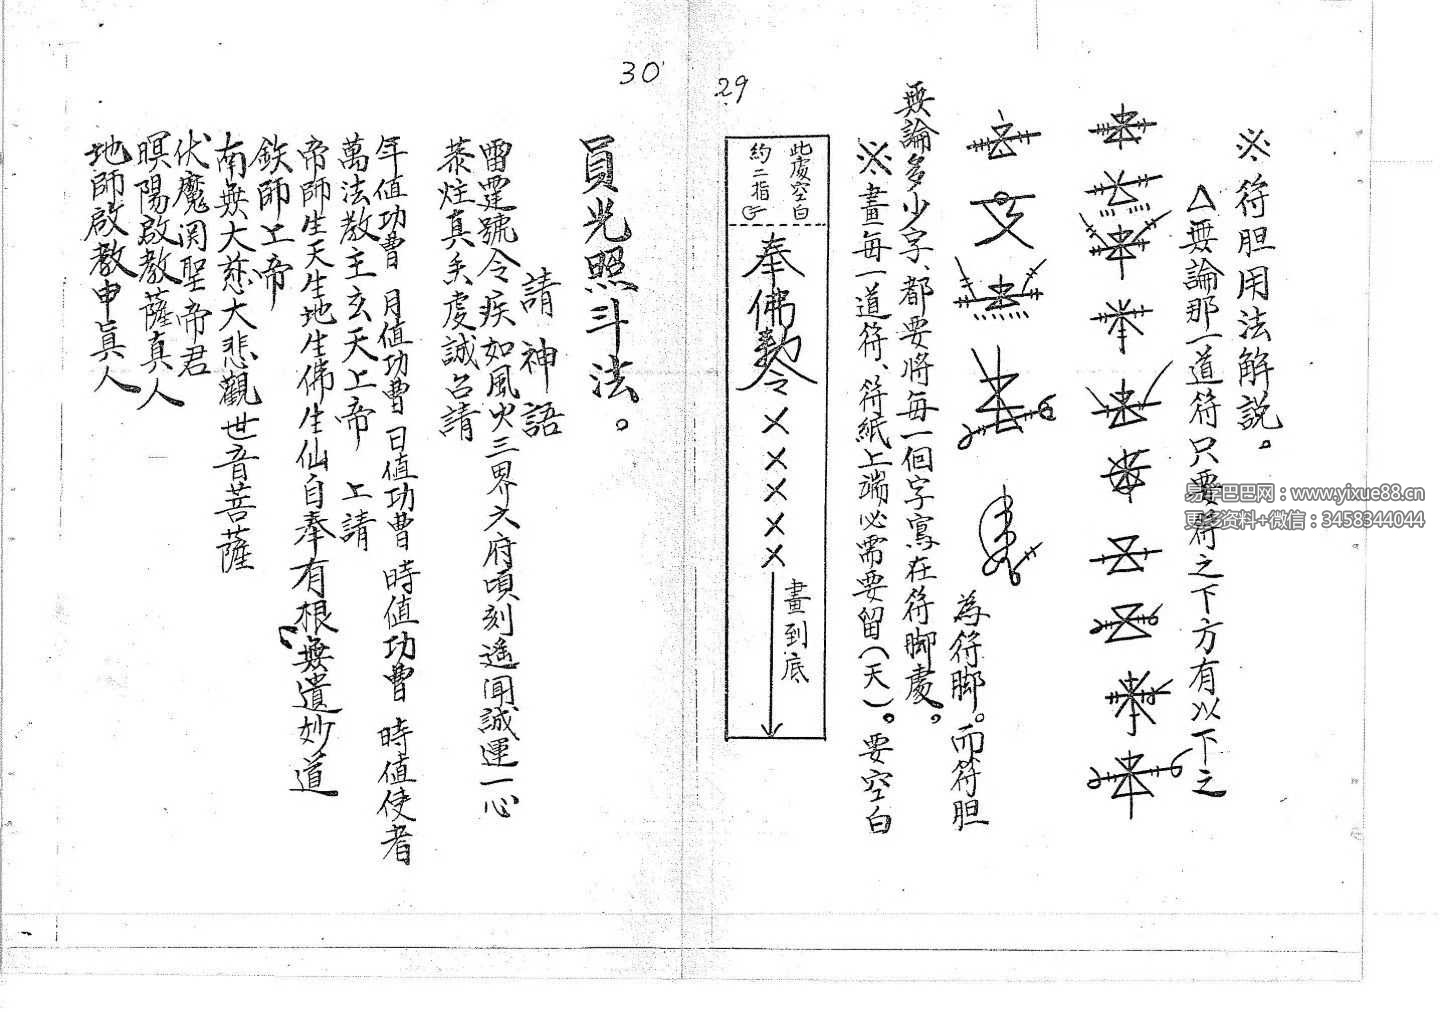 29
※符胆用法解説。
△無論那一道符只要符之下方有以下之
為符脚。而符胆
無論多少字、都要將每一個字寫在符脚處。
※畫每一道符、符紙上端必需要留(天)。要空白
此處空白
約二指
奉佛勅令×××××
畫到底
30
員光照斗法。
請神語
雷霆號令疾如風火三界六府頃刻遙聞誠運一心
恭炷真香虔誠召請
年值功曹 月值功曹 日值功曹 時值功曹 時值使者
萬法教主玄天上帝 上請
帝師生天生地生佛生仙自奉有根無遺妙道
鉄師上帝
南無大慈大悲觀世音菩薩
伏魔関聖帝君
暝陽啟教薩真人
地師啟教申真人
易学巴巴网:www.yixue88.cn
更多资料+微信:3458344044